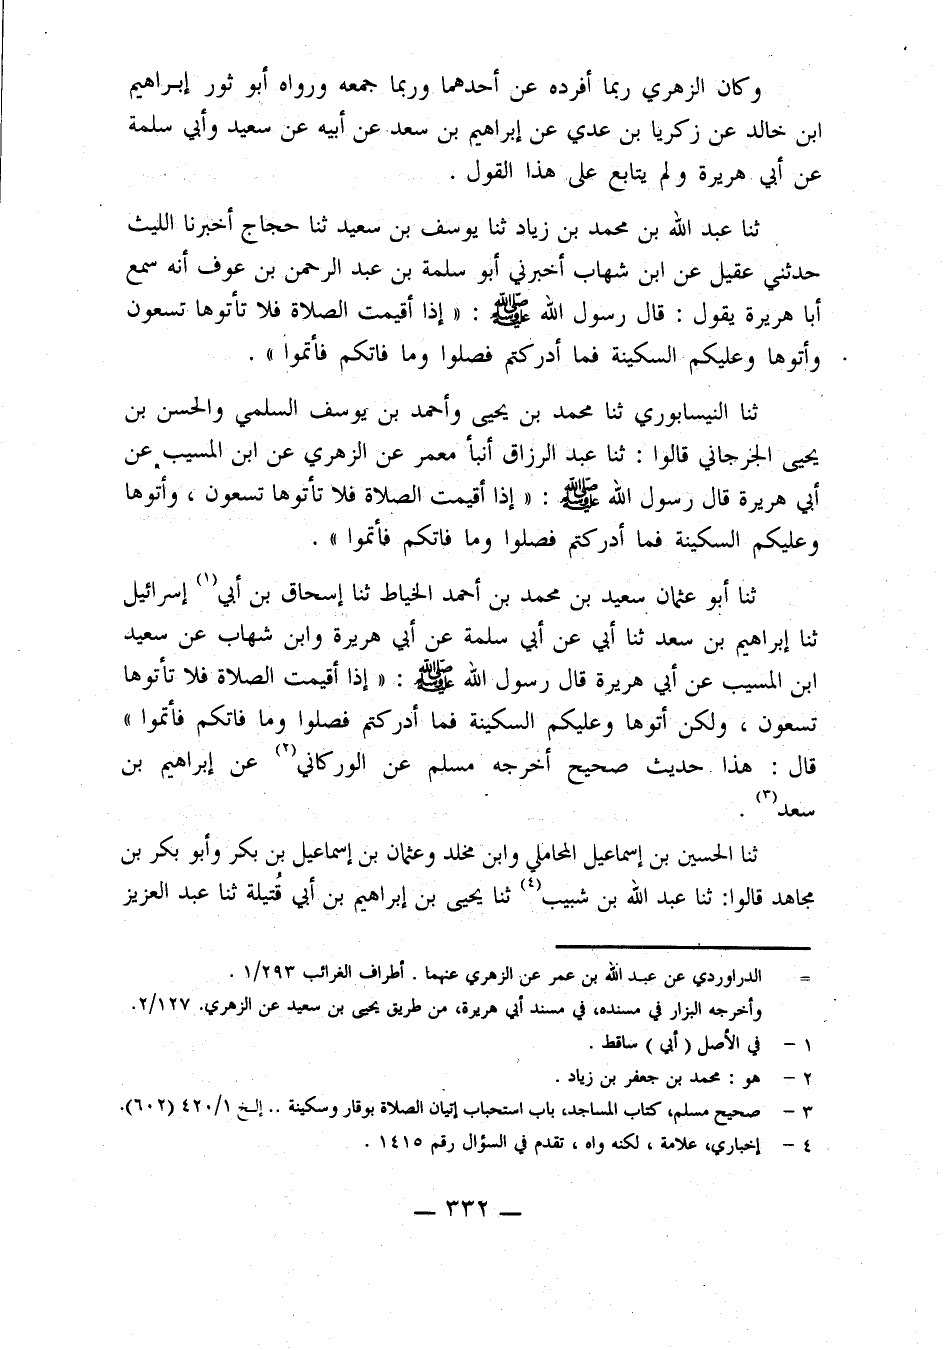 وكان الزهري ربما أفرده عن أحدهما وربما جمعه ورواه أبو ثور إبراهيم
ابن خالد عن زكريا بن عدي عن إبراهيم بن سعد عن أبيه عن سعيد وأبي سلمة
عن أبي هريرة ولم يتابع على هذا القول .
ثنا عبد الله بن محمد بن زياد ثنا يوسف بن سعيد ثنا حجاج أخبرنا الليث
حدثني عقيل عن ابن شهاب أخبرني أبو سلمة بن عبد الرحمن بن عوف أنه سمع
أبا هريرة يقول : قال رسول الله ﷺ : « إذا أقيمت الصلاة فلا تأتوها تسعون
وأتوها وعليكم السكينة فما أدركتم فصلوا وما فاتكم فأتموا » .
ثنا النيسابوري ثنا محمد بن يحيى وأحمد بن يوسف السلمي والحسن بن
يحيى الجرجاني قالوا : ثنا عبد الرزاق أنبأ معمر عن الزهري عن ابن المسيب عن
أبي هريرة قال رسول الله ﷺ : « إذا أقيمت الصلاة فلا تأتوها تسعون ، وأتوها
وعليكم السكينة فما أدركتم فصلوا وما فاتكم فأتموا » .
ثنا أبو عثمان سعيد بن محمد بن أحمد الخياط ثنا إسحاق بن أبي(١) إسرائيل
ثنا إبراهيم بن سعد ثنا أبي عن أبي سلمة عن أبي هريرة وابن شهاب عن سعيد
ابن المسيب عن أبي هريرة قال رسول الله ﷺ : « إذا أقيمت الصلاة فلا تأتوها
تسعون ، ولكن أتوها وعليكم السكينة فما أدركتم فصلوا وما فاتكم فأتموا »
قال : هذا حديث صحيح أخرجه مسلم عن الوركاني(٢) عن إبراهيم بن
سعد(٣) .
ثنا الحسين بن إسماعيل المحاملي وابن مخلد وعثمان بن إسماعيل بن بكر وأبو بكر بن
مجاهد قالوا: ثنا عبد الله بن شبيب(٤) ثنا يحيى بن إبراهيم بن أبي قُتيلة ثنا عبد العزيز
= الدراوردي عن عبد الله بن عمر عن الزهري عنهما . أطراف الغرائب ١/٢٩٣ .
وأخرجه البزار في مسنده، في مسند أبي هريرة، من طريق يحيى بن سعيد عن الزهري. ٢/١٢٧.
١ – في الأصل ( أبي ) ساقط .
٢ – هو : محمد بن جعفر بن زياد .
٣ – صحيح مسلم، كتاب المساجد، باب استحباب إتيان الصلاة بوقار وسكينة .. إلخ ٤٢٠/١ (٦٠٢).
٤ – إخباري، علامة ، لكنه واه ، تقدم في السؤال رقم ١٤١٥ .
— ٣٣٢ —